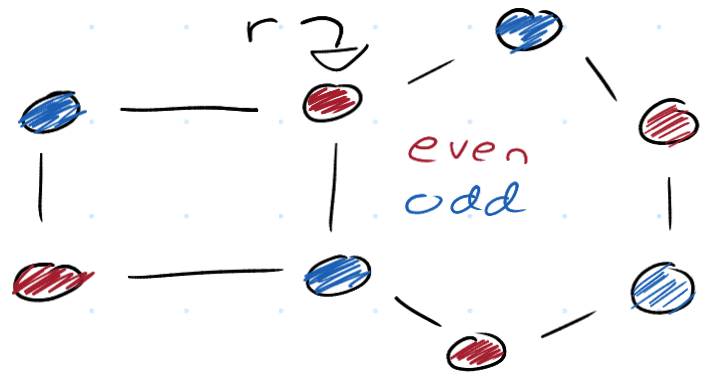 r
even
odd